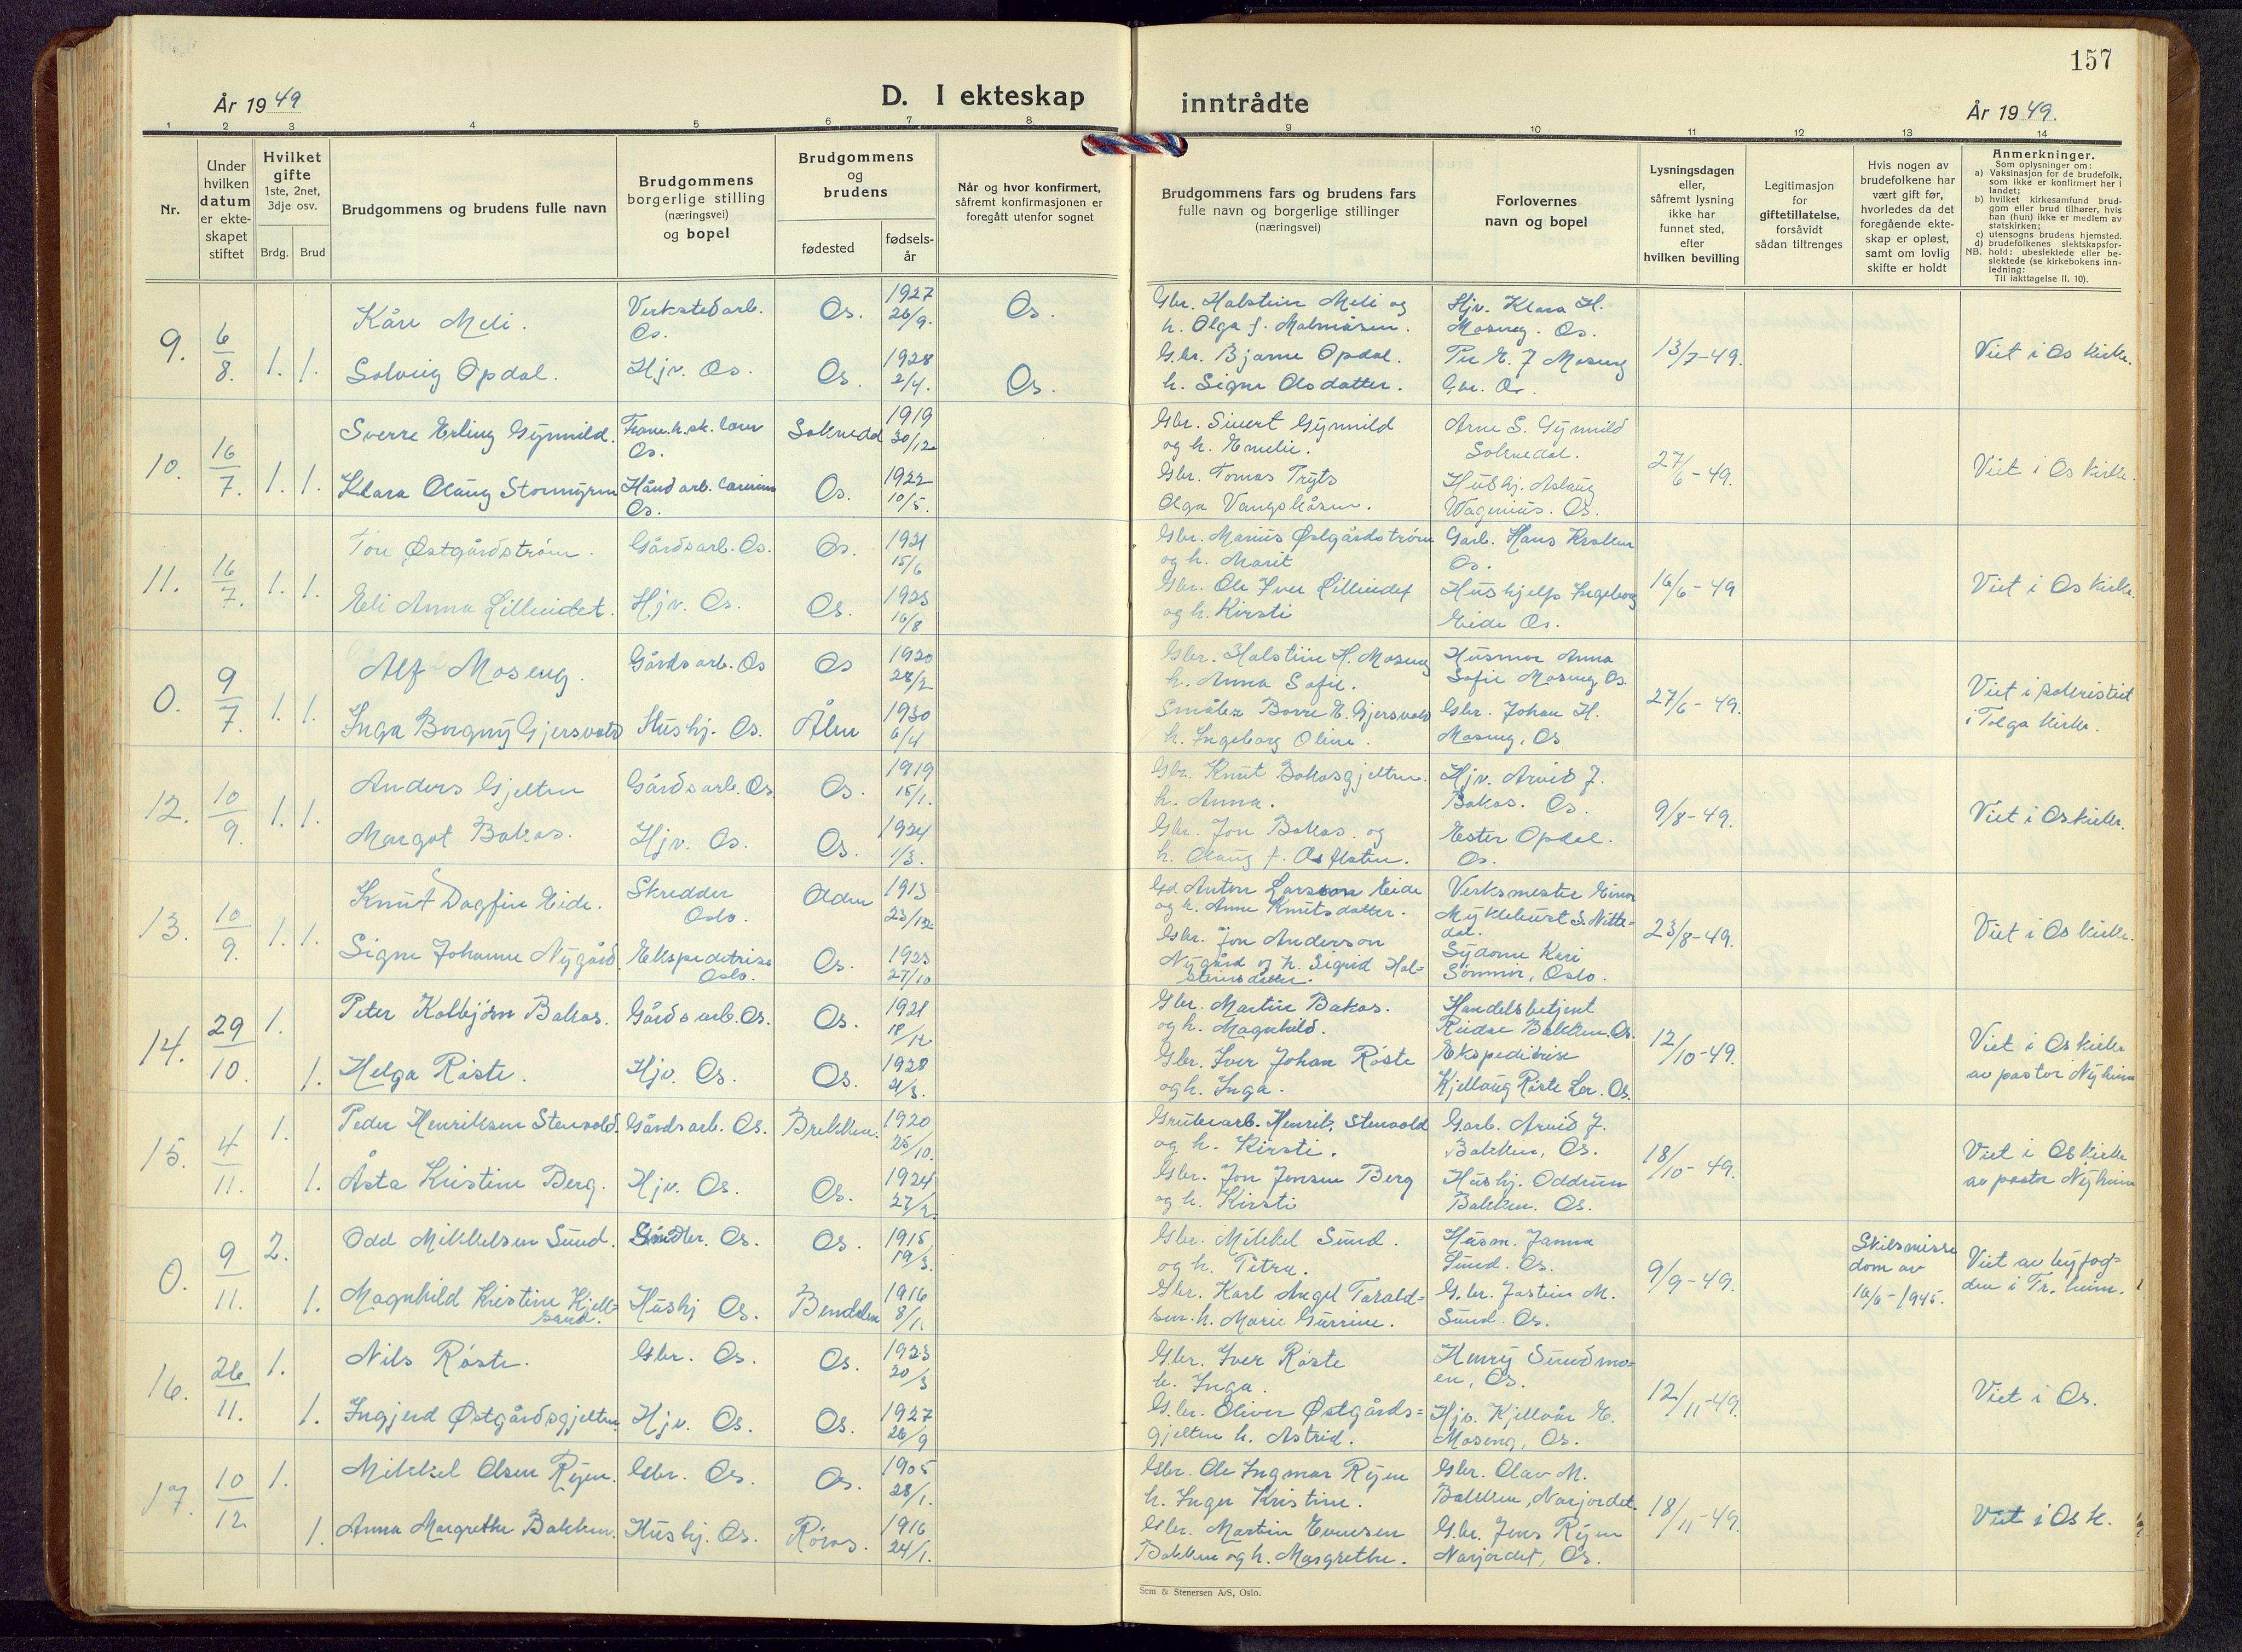 157
År 1949
D. I ekteskap inntrådte
År 1949.
1 2 3 4 5 6 7 8 9 10 11 12 13 14
Nr.
Under hvilken datum er ekteskapet stiftet
Hvilket gifte
1ste, 2net, 3dje osv.
Brdg. Brud
Brudgommens og brudens fulle navn
Brudgommens borgerlige stilling (næringsvei) og bopel
Brudgommens og brudens
fødested
fødsels-år
Når og hvor konfirmert, såfremt konfirmasjonen er foregått utenfor sognet
Brudgommens fars og brudens fars fulle navn og borgerlige stillinger (næringsvei)
Forlovernes navn og bopel
Lysningsdagen eller, såfremt lysning ikke har funnet sted, efter hvilken bevilling
Legitimasjon for giftetillatelse, forsåvidt sådan tiltrenges
Hvis nogen av brudefolkene har vært gift før, hvorledes da det foregående ekteskap er opløst, samt om lovlig skifte er holdt
Anmerkninger.
Som oplysninger om:
a) Vaksinasjon for de brudefolk, som ikke er konfirmert her i landet;
b) hvilket kirkesamfund brudgom eller brud tilhører, hvis han (hun) ikke er medlem av statskirken;
c) utensogns brudens hjemsted.
d) brudefolkenes slektskapsforhold: ubeslektede eller beslektede (se kirkebokens innledning:
NB. Til iakttagelse II. 10).
9. 6/8. 1. 1.
Kåre Meli. Verkstedarb. Os. Os. 1927 26/9. Os.
Gbr. Halstein Meli og
h. Olga f. Malmåsen.
Hjv. Klara H.
Moseng. Os.
Solveig Opdal. Hjv. Os. Os. 1928 2/4. Os.
Gbr. Bjarne Opdal.
h. Signe Olsdatter.
Per E. J Moseng
Gbr. Os
13/7-49. Viet i Os kirke.
10. 16/7. 1. 1.
Sverre Erling Gynnild. Os. Soknedal 1919 30/12
Gbr. Sivert Gynnild
og h. Emelie.
Arne S. Gynnild
Soknedal.
Klara Olaug Stormyren Håndarb. lærerinne Os. Os. 1922 10/5.
Gbr. Tomas Tryts
Olga Vangskåsen.
Hushj. Aslaug
Wagenius. Os.
27/6-49. Viet i Os kirke.
11. 16/7. 1. 1.
Tore Østgårdstrøm. Gårdsarb. Os. Os. 1921 15/6
Gbr. Marius Østgårdstrøm
og h. Marit
Garb. Hans
Os.
Eli Anna Lilleeidet. Hjv. Os. Os. 1925 16/8
Gbr. Ole Iver Lilleeidet
og h. Kirsti
Hushjelp Ingeborg
Eide Os.
16/6-49 Viet i Os kirke.
0. 9/7. 1. 1.
Alf Moseng. Gårdsarb. Os Os 1920 28/2
Gbr. Halstein H. Moseng
h. Anna Sofie.
Husmor Anna
Sofie Moseng Os.
Inga Borgny Gjersvold Hushj. Os. Ålen 1930 6/4
Småbr. Borre E. Gjersvold
h. Ingeborg Oline.
Gbr. Johan H.
Moseng, Os
27/6-49. Viet i sakristiet
i Tolga kirke.
12. 10/9. 1. 1.
Anders Gjelten Gårdsarb. Os. Os. 1919 15/1.
Gbr. Knut Bakosgjelten.
h. Anna.
Hjv. Arvid J.
Bakos. Os.
Margot Bakos. Hjv. Os. Os. 1924 1/3.
Gbr. Jon Bakos. og
h. Olaug f.
Ester Opdal.
Os.
9/8-49. Viet i Os kirke.
13. 10/9. 1. 1.
Knut Dagfin Eide. Skredder Oslo. Odden 1913 23/12
Gd Anton Larsson Eide
og h. Anne Knutsdatter.
Verksmester Einar
Myklebust S. Nitte=
dal.
Signe Johanne Nygård. Ekspeditrise Oslo. Os. 1923 27/10
Gbr. Jon Anderson
Nygård og h. Sigrid Hal=
steinsdatter.
Sydame Kari
Sømmir, Oslo.
23/8-49. Viet i Os kirke.
14. 29/10. 1. 1.
Peter Kolbjørn Bakos. Gårdsarb. Os. Os. 1921 18/12
Gbr. Martin Bakos.
og h. Magnhild.
Handelsbetjent
Reidar Bakken. Os.
Helga Røste. Hjv. Os. Os. 1928 21/3.
Gbr. Iver Johan Røste
og h. Inga.
Ekspeditrise
Kjellaug Røste Os.
12/10-49. Viet i Os kirke
av pastor Nyhuus
15. 4/11. 1. 1.
Peder Henriksen Stenvold. Gårdsarb. Os. Brekken. 1920 25/10.
Grubearb. Henrik Stenvold
og h. Kirsti.
Garb. Arvid J.
Bakken, Os.
Åsta Kristine Berg. Hjv. Os. Os. 1924 27/2.
Gbr. Jon Jensen Berg
og h. Kirsti
Hushj. Oddrun
Bakken. Os.
18/10-49. Viet i Os kirke
av pastor Nyhuus
0. 9/11. 2. 1.
Odd Mikkelsen Sund. Os. Os. 1915 19/3.
Gbr. Mikkel Sund.
og h. Petra.
Husm. Janna
Sund. Os.
Magnhild Kristine Kjell=
sand. Hushj Os. Bindalen 1916 8/1.
Gbr. Karl Angel Tarald=
sen. h. Marie Gurine.
G.br. Jostein M.
Sund. Os.
9/9-49. Skilsmisse
dom av
16/6-1945. Viet av byfog=
den i Tr. heim.
16. 26/11. 1. 1.
Nils Røste. Gbr. Os. Os. 1923 20/3
Gbr. Iver Røste
h. Inga.
Henry Sundmo=
en, Os.
Ingjerd Østgårdsgjelten. Hjv. Os. Os. 1927 26/9
G.br. Oliver Østgårds=
gjelten h. Astrid.
Hjv. Kjellvår E.
Moseng, Os.
12/11-49. Viet i Os.
17. 10/12 1. 1.
Mikkel Olsen Ryen. Gbr. Os. Os. 1905 28/1.
Gbr. Ole Ingmar Ryen
h. Inger Kristine.
Gbr. Olav M.
Bakken, Narjordet.
Anna Margrethe Bakken. Hushj. Os. Røros. 1916 24/1.
Gbr. Martin Evensen
Bakken og h. Margrethe.
G.br. Jens Ryen
Narjordet, Os.
18/11-49. Viet i Os k.
Sem & Stenersen A/S, Oslo.